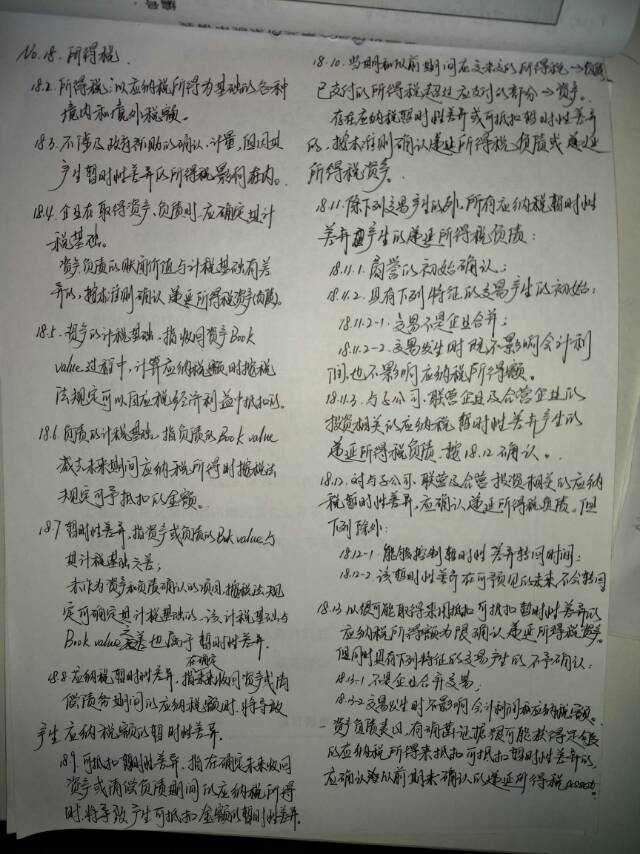 No.18. 所得税
18.2. 所得税:以应纳税所得为基础的各种
境内和境外税额。
18.3. 不涉及政府补助的确认、计量,但因其
产生暂时性差异的所得税影响在内。
18.4. 企业在取得资产、负债时,应确定其计
税基础。
资产、负债的账面价值与计税基础有差
异的,按本准则确认递延所得税资产(负债)。
18.5. 资产的计税基础,指收回资产Book
value过程中,计算应纳税额时按税
法规定可以自应税经济利益中抵扣的。
18.6 负债的计税基础,指负债的Book value
减去未来期间应纳税所得时按税法
规定可予抵扣的金额。
18.7 暂时性差异,指资产或负债的Book value与
其计税基础之差;
未作为资产和负债确认的项目,按税法规
定可确定其计税基础的,该计税基础与
Book value之差也属于暂时性差异.
18.8 应纳税暂时性差异,指在确定未来收回资产或清
偿债务期间的应纳税额时,将导致
产生应纳税额的暂时性差异.
18.9. 可抵扣暂时性差异,指在确定未来收回
资产或清偿负债期间的应纳税所得
时,将导致产生可抵扣金额的暂时性差异.
18.10. 当期和以前期间应交未交的所得税→负债
已支付的所得税超过应支付的部分→资产。
存在应纳税暂时性差异或可抵扣暂时性差异
的,按本准则确认递延所得税负债或递延
所得税资产。
18.11. 除下列交易产生的外,所有应纳税暂时性
差异产生的递延所得税负债:
18.11.1. 商誉的初始确认;
18.11.2. 具有下列特征的交易产生的初始:
18.11.2-1. 交易不是企业合并;
18.11.2-2. 交易发生时既不影响会计利
润,也不影响应纳税所得额。
18.11.3. 与子公司、联营企业及合营企业的
投资相关的应纳税暂时性差异产生的
递延所得税负债,按18.12确认。
18.12. 对与子公司、联营及合营投资相关的应纳
税暂时性差异,应确认递延所得税负债。但
下列除外:
18.12-1. 能够控制暂时性差异转回时间;
18.12-2. 该暂时性差异在可预见的未来不会转回
18.13 以很可能取得来用抵扣可抵扣暂时性差异的
应纳税所得额为限确认递延所得税资产。
但同时具有下列特征的交易产生的不予确认:
18.13-1 不是企业合并交易;
18.13-2 交易发生时不影响会计利润和应纳税额。
资产负债表日,有确凿证据很可能获得足够
的应纳税所得来抵扣可抵扣暂时性差异的,
应确认以前期未确认的递延所得税asset.